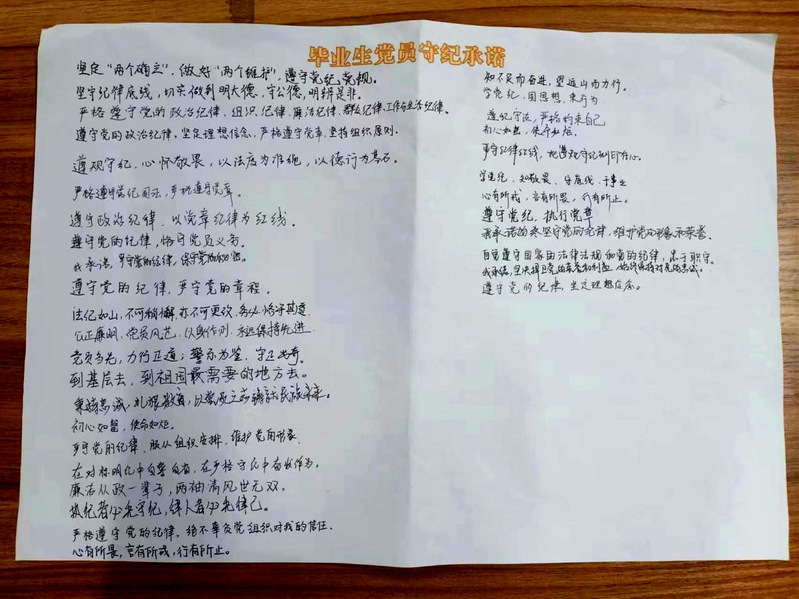 毕业生党员守纪承诺
坚定“两个确立”，做好“两个维护”，遵守党纪党规。
坚守纪律底线，切实做到明大德，守公德，明辨是非。
严格遵守党的政治纪律，组织纪律，廉洁纪律，群众纪律，工作与生活纪律。
遵守党的政治纪律，坚定理想信念，严格遵守党章，坚持组织原则。
遵规守纪，心怀敬畏，以法度为准绳，以德行为基石。
严格遵守党纪国法，严格遵守党章。
遵守政治纪律，以党章纪律为红线。
遵守党的纪律，恪守党员义务。
我承诺，严守党的纪律，保守党的秘密。
遵守党的纪律，严守党的章程。
法纪如山，不可稍懈，亦不可更改，务必恪守其道
公正廉明，党员风范，以身作则，永远保持先进
党员当先，力行正道；警示为鉴，守正出奇。
到基层去，到祖国最需要的地方去。
秉端忠诚，扎根教育，以爱铸就民族未来
初心如磐，使命如炬。
严守党的纪律，服从组织安排，维护党的形象
在对标明化中自警自省，在严格守化中奋发作为。
廉洁从政一辈子，两袖清风世无双。
执纪者必先守纪，律人者必先律己。
严格遵守党的纪律，绝不辜负党组织对我的信任.
心有所畏，言有所戒，行有所止。
知不足而奋进，望远山而力行。
学党纪，固思想，束行为
遵纪守法，严格约束自己
初心如磐，
严守纪律红线，把遵规守纪刻印在心。
学党纪、知敬畏、守底线、干事业
心有所戒，言有所畏，行有所止。
遵守党纪，执行党章
我承诺始终坚守党的纪律，维护党的形象和荣誉
自觉遵守国家的法律法规和党的纪律，忠于职守。
我承诺，坚决捍卫党的荣誉和利益，始终保持对党的忠诚。
遵守党的纪律，坚定理想信念。